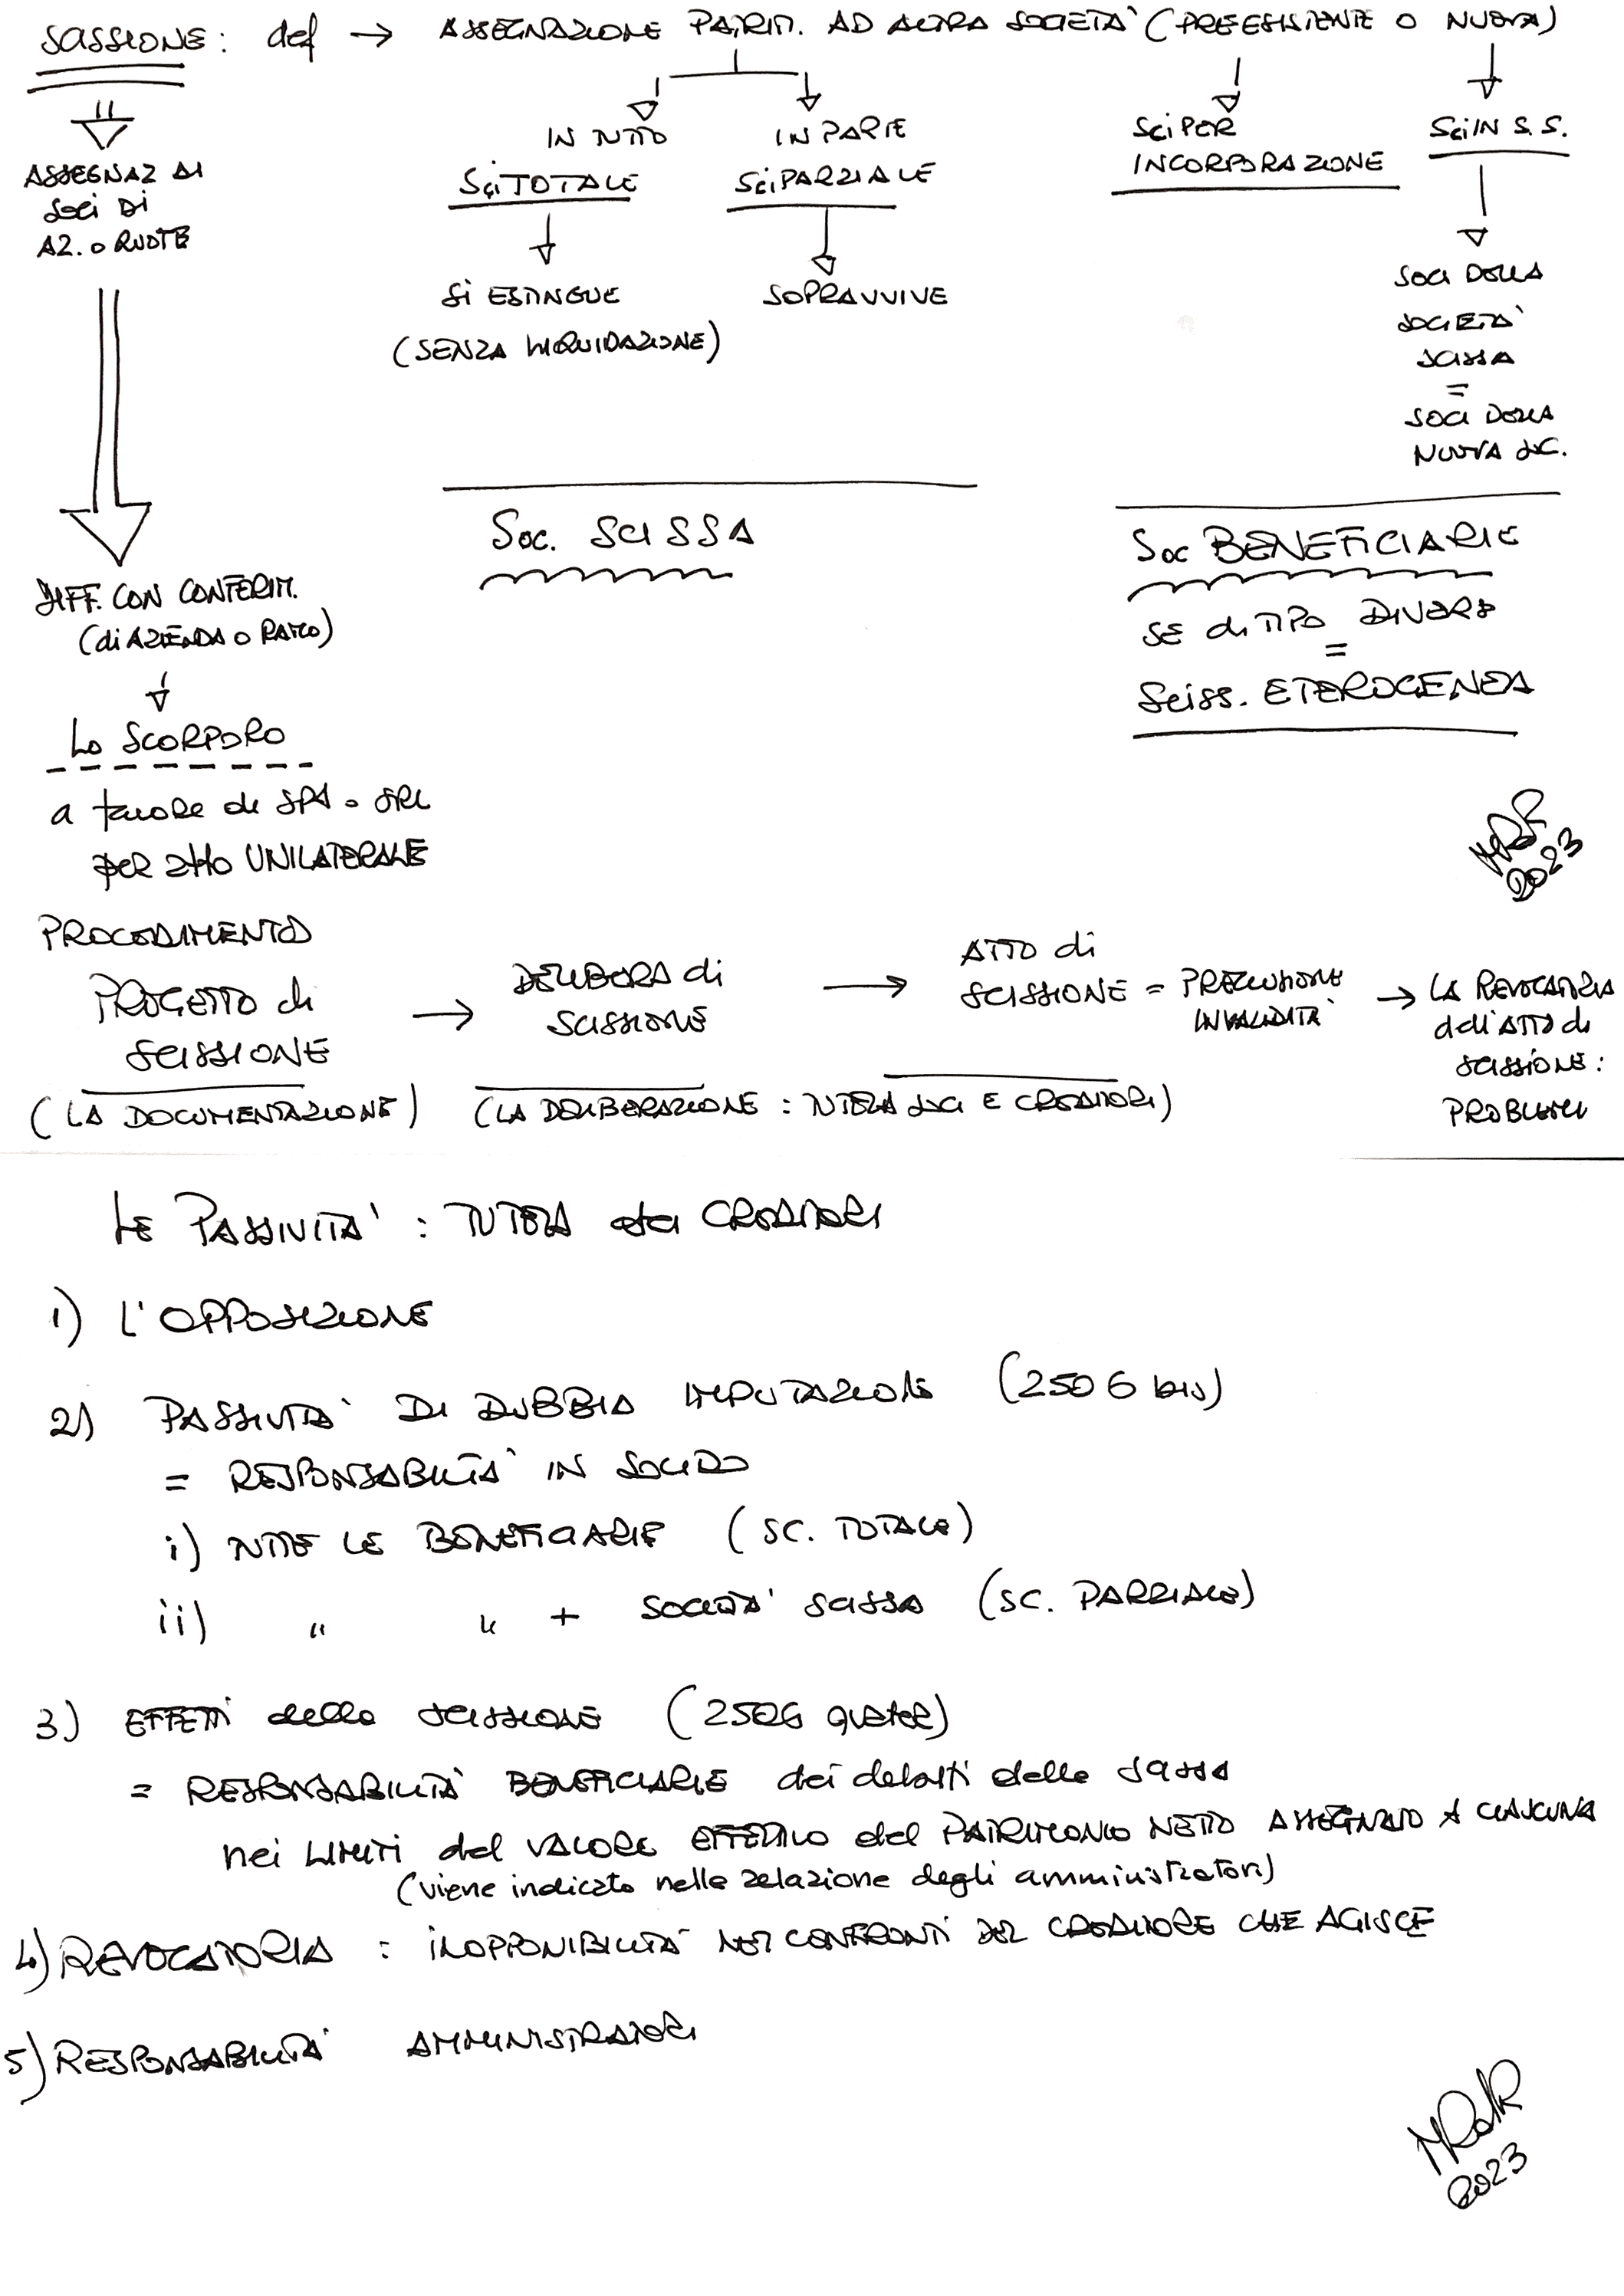 SCISSIONE: def → ASSEGNAZIONE PATRIM. AD ALTRA SOCIETÀ (PREESISTENTE O NUOVA)
ASSEGNAZ AI
SOCI DI
AZ. O QUOTE
IN TUTTO
SCi TOTALE
SI ESTINGUE
(SENZA LIQUIDAZIONE)
IN PARTE
SCi PARZIALE
SOPRAVVIVE
SCi PER
INCORPORAZIONE
SCi IN S.S.
SOCI DELLA
SOCIETÀ
SCISSA
=
SOCI DELLA
NUOVA SOC.
Soc. SCISSA
Soc BENEFICIARIE
SE di TIPO DIVERSO
=
Sciss. ETEROGENEA
DIFF. CON CONFERIM.
(di AZIENDA O RAMO)
Lo SCORPORO
a favore di SPA o SRL
per atto UNILATERALE
2023
PROCEDIMENTO
PROGETTO di
SCISSIONE
(LA DOCUMENTAZIONE)
→ DELIBERA di
SCISSIONE
→ ATTO di
SCISSIONE = PRECLUSIONE
INVALIDITÀ
(LA DELIBERAZIONE : TUTELA SOCI E CREDITORI)
→ LA REVOCATORIA
dell'ATTO di
SCISSIONE:
PROBLEMI
LE PASSIVITÀ : TUTELA dei CREDITORI
1) L'OPPOSIZIONE
2) PASSIVITÀ DI DUBBIA IMPUTAZIONE (2506 bis)
= RESPONSABILITÀ IN SOLIDO
i) TUTTE LE BENEFICIARIE (SC. TOTALE)
ii) " " + SOCIETÀ SCISSA (SC. PARZIALE)
3) EFFETTI della SCISSIONE (2506 quater)
= RESPONSABILITÀ BENEFICIARIE dei debiti della scissa
nei LIMITI del VALORE EFFETTIVO del PATRIMONIO NETTO ASSEGNATO A CIASCUNA
(viene indicato nella relazione degli amministratori)
4) REVOCATORIA : INOPPONIBILITÀ NEI CONFRONTI DEL CREDITORE CHE AGISCE
5) RESPONSABILITÀ AMMINISTRATORI
2023